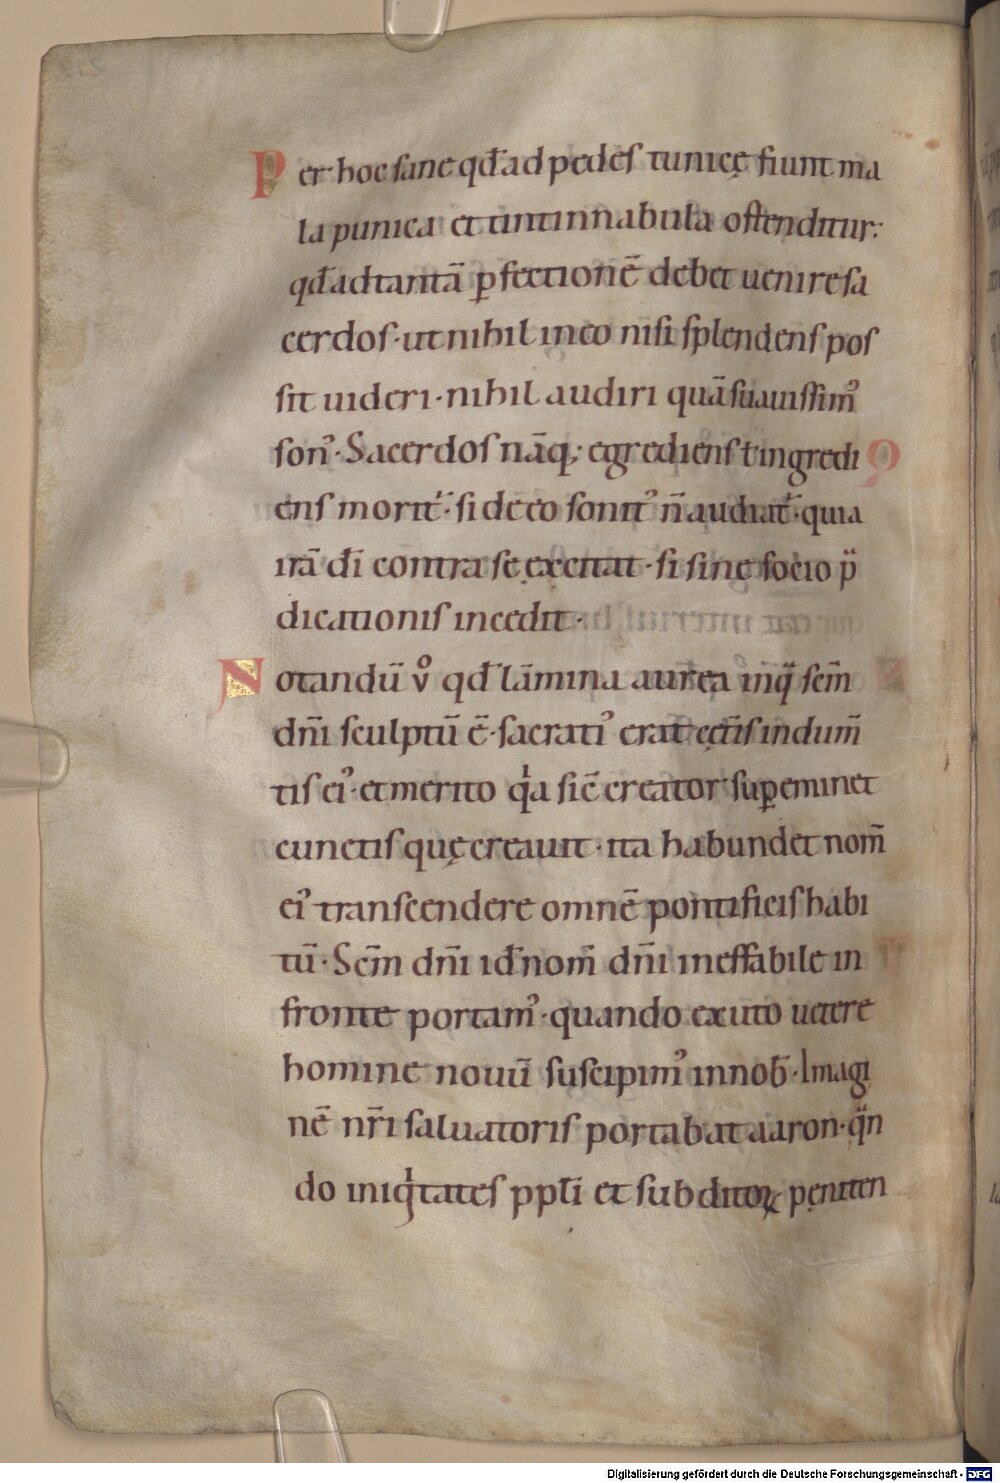 Per hoc sane qđ ad pedes tunicę fiunt ma
la punica et tintinnabula ostenditur:
qđ ad tantā ꝑfectionē debet uenire sa
cerdos· ut nihil in eo nisi splendens pos
sit uideri· nihil audiri quā suauissimꝰ
sonꝰ· Sacerdos nāq; egrediens ł ingredi
ens morit᷒· si de eo sonitꝰ n̄ audiat᷒· quia
irā dī contra se excitat· si sine socio p̄
dicationis incedit·
Notandū v̊ qđ lāmina aurea inq̄ scm̄
dn̄i sculptū ē· sacratiꝰ erat cęt̄is indum̄
tis eiꝰ· et merito qͥa sic̄ creator suꝑeminet
cunctis quę creauit· ita habundet nom̄
eiꝰ transcendere omnē pontificis habi
tū· Scm̄ dn̄i id̄ nom̄ dn̄i ineffabile in
fronte portamꝰ· quando exuto uetere
homine nouū suscipimꝰ in nob̄· Imagi
nē nr̄i saluatoris portabat aaron· qn̄
do iniqͥtates ppłi et subditoꝝ pęniten
Digitalisierung gefördert durch die Deutsche Forschungsgemeinschaft - DFG